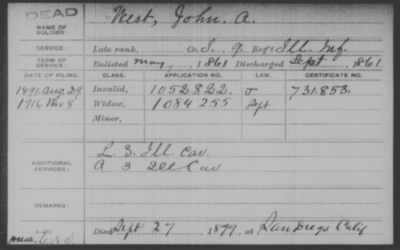 DEAD
NAME OF SOLDIER: West, John. A.
SERVICE: Late rank, Co. I. 9. Reg't Ill. Inf.
TERM OF SERVICE: Enlisted May, 1861 Discharged Sept, 1861
DATE OF FILING. CLASS. APPLICATION NO. LAW. CERTIFICATE NO.
1891. Aug. 29 Invalid, 1052822. J 731.853.
1916 Nov 8 Widow, 1084255 Sept
Minor,
ADDITIONAL SERVICES: L. 3. Ill Cav.
A 3 Ill Cav
REMARKS:
Died Sept 27, 1899, at San Diego Calif